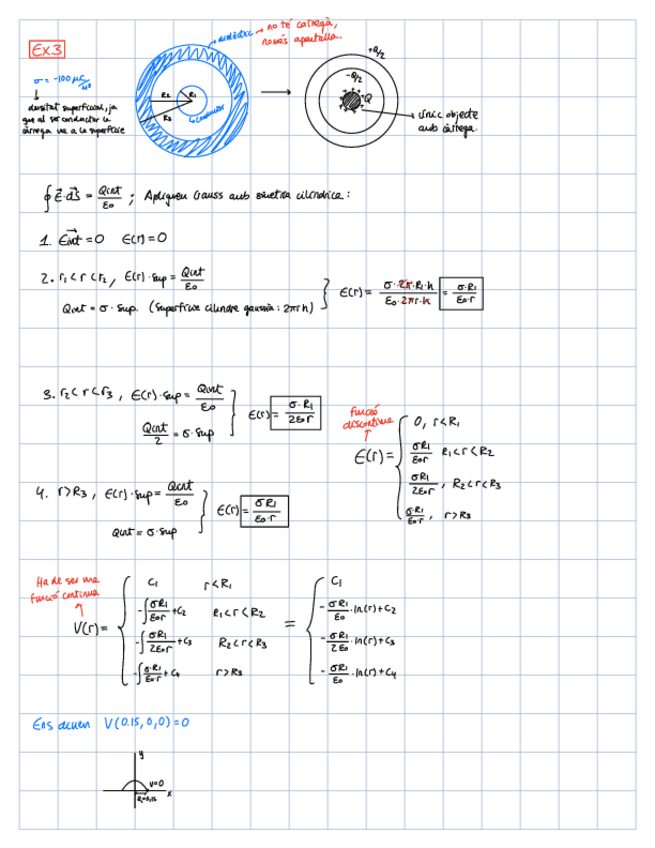 Ex.3
dielèctric → no té càrrega,
només apantalla.
σ = -100 μC/m²
densitat superficial, ja
que al ser conductor la
càrrega va a la superfície
R2
R1
R3
conductor
+Q/2
-Q/2
Q
únic objecte
amb càrrega.
∮ E·dS = Qint/ε0 ; Apliquem Gauss amb simetria cilíndrica:
1. Eint = 0 E(r) = 0
2. r1 < r < r2, E(r)·sup = Qint/ε0
Qint = σ · sup. (superfície cilindre gaussià: 2πrh)
E(r) = σ·2π·R1·h / ε0·2πr·h = σ·R1/ε0·r
3. r2 < r < r3, E(r)·sup = Qint/ε0
Qint/2 = σ·sup
E(r) = σ·R1/2ε0r
4. r > R3, E(r)·sup = Qint/ε0
Qint = σ·sup
E(r) = σR1/ε0·r
Funció
discontinua
E(r) =
0, r < R1
σR1/ε0r R1 < r < R2
σR1/2ε0r, R2 < r < R3
σ·R1/ε0·r, r > R3
Ha de ser una
funció contínua
V(r) =
C1 r < R1
-∫ σR1/ε0r + C2 R1 < r < R2
-∫ σR1/2ε0r + C3 R2 < r < R3
-∫ σ·R1/ε0·r + C4 r > R3
=
C1
- σR1/ε0 · ln(r) + C2
- σR1/2ε0 · ln(r) + C3
- σR1/ε0 · ln(r) + C4
Ens diuen V(0.15, 0, 0) = 0
y
V=0
R1=0,15
x